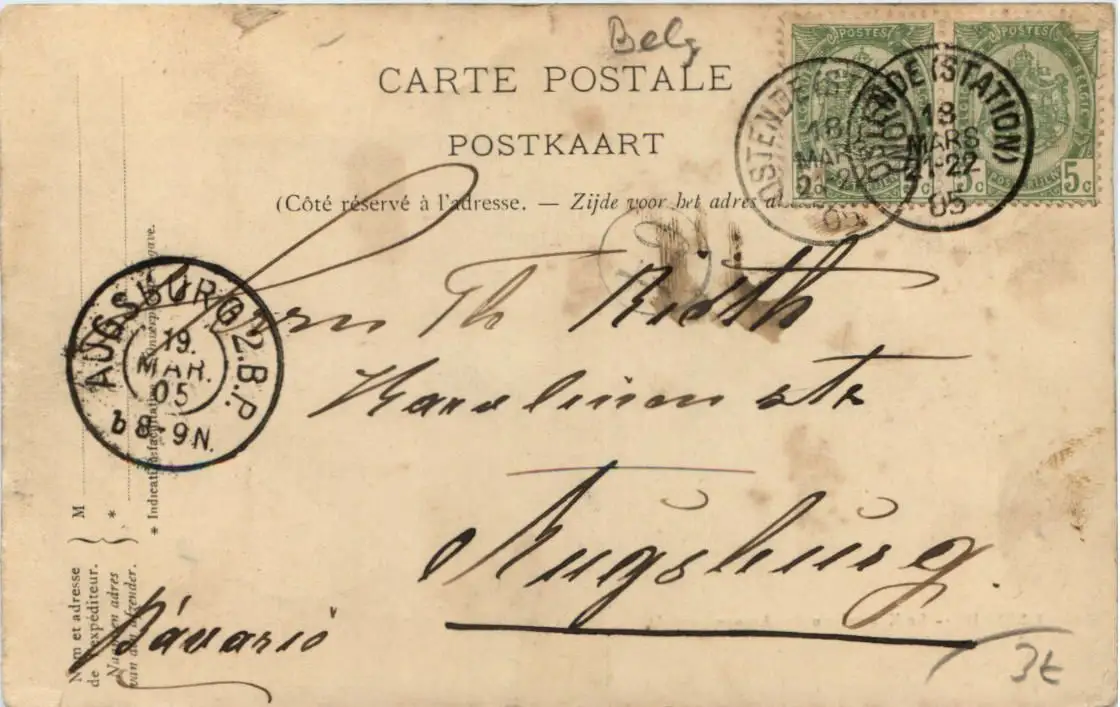 Belg
CARTE POSTALE
POSTKAART
(Côté réservé à l'adresse. — Zijde voor het adres
POSTES
POSTES
5c
OSTENDE (STATION)
18
MARS
21-22
05
OSTENDE (STATION)
18
MARS
21-22
05
AUGSBURG 2.B.P.
19.
MAR.
05
b 8-9 N.
Hern Th Rieth
Karolinen str
Augsburg.
Bavario
M
*
Nom et adresse
de l'expéditeur.
Naam en adres
van den afzender.
* Indication facultative
3€